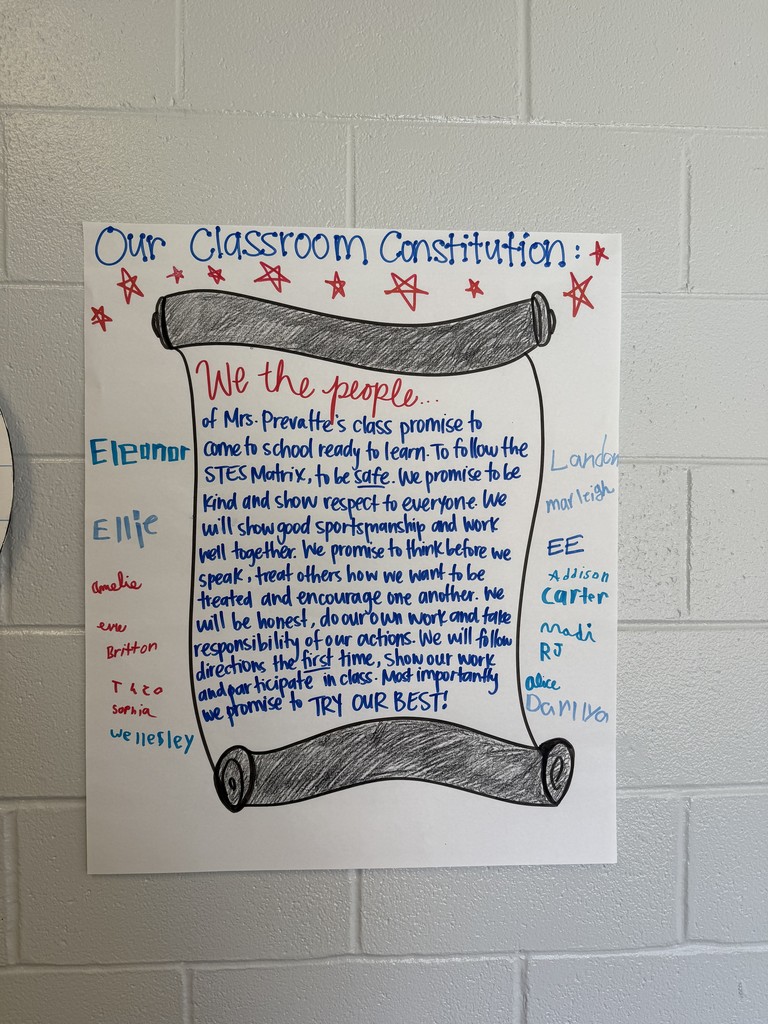 Our Classroom Constitution:
We the people...
of Mrs. Prevatte's class promise to
come to school ready to learn. To follow the
STES Matrix, to be safe. We promise to be
kind and show respect to everyone. We
will show good sportsmanship and work
well together. We promise to think before we
speak, treat others how we want to be
treated and encourage one another. We
will be honest, do our own work and take
responsibility of our actions. We will follow
directions the first time, show our work
and participate in class. Most importantly
we promise to TRY OUR BEST!
Eleanor
Ellie
amelia
Britton
Theo
sophia
wellesley
Landon
marleigh
EE
Addison
carter
madi
RJ
alice